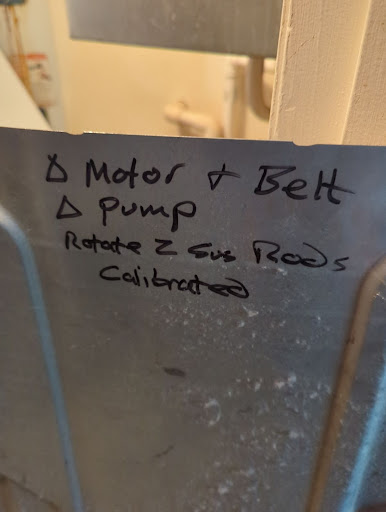 Δ Motor + Belt
Δ Pump
Rotate 2 Sus Rods
Calibrated